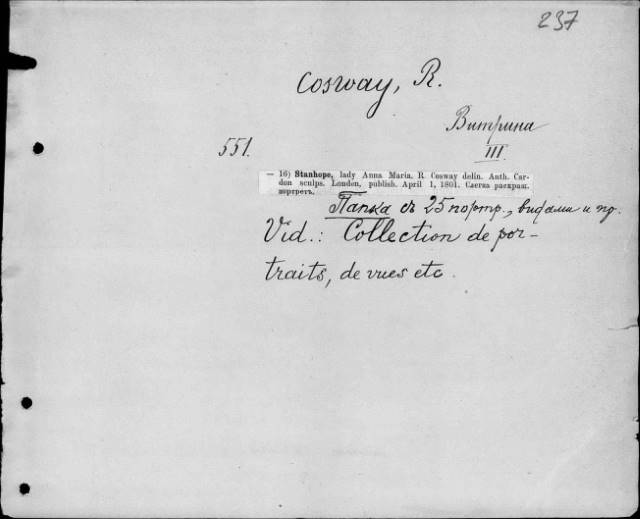 237
Cosway, R.
Витрина
III.
551.
— 16) Stanhope, lady Anna Maria. R. Cosway delin. Anth. Car-
don sculps. London, publish. April 1, 1801. Слегка раскраш.
портретъ.
Папка съ 25 портр., видами и пр.
Vid.: Collection de por-
traits, de vues etc.